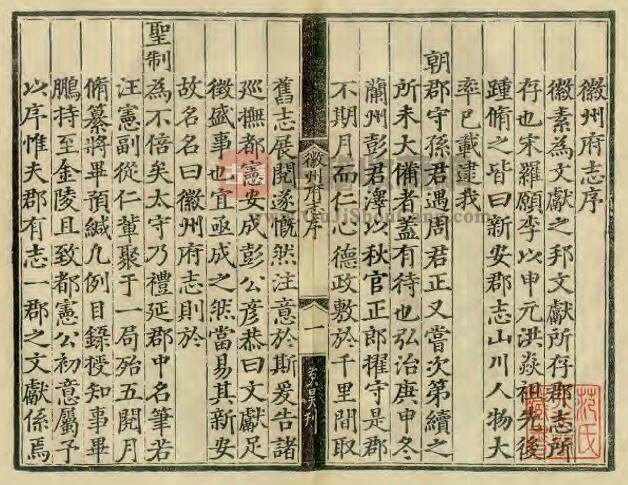 徽州府志序
徽素為文獻之邦文獻所存郡志所
存也宋羅願李以申元洪焱祖先後
踵脩之皆曰新安郡志山川人物大
率已載逮我
朝郡守孫君遇周君正又嘗次第續之
所未大備者蓋有待也弘治庚申冬
蘭州彭君澤以秋官正郎擢守是郡
不期月而仁心德政敷於千里間取
徽州府序
一
舊志展閱遂慨然注意於斯爰告諸
巡撫都憲安成彭公彥恭曰文獻足
徵盛事也宜亟成之然當易其新安
故名名曰徽州府志則於
聖制
為不倍矣太守乃禮延郡中名筆若
汪憲副從仁董聚于一局殆五閱月
脩纂將畢預緘凡例目錄授知事畢
鵬持至金陵且致都憲公初意屬予
以序惟夫郡有志一郡之文獻係焉
范氏